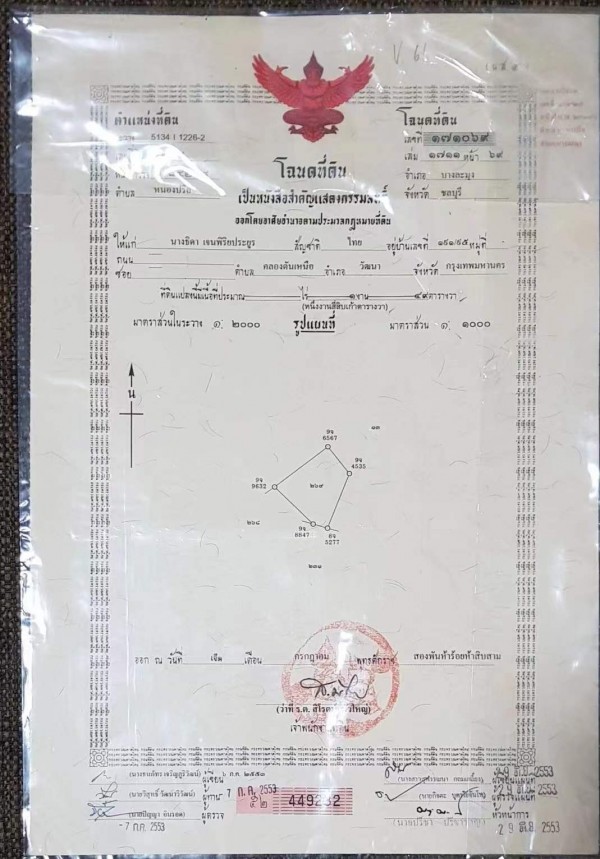 V 61
ตำแหน่งที่ดิน
โฉนดที่ดิน
ระวาง 5134 I 1226-2
เลขที่ ๑๗๑๐๖๙
เล่ม ๑๗๑๑ หน้า ๖๙
ตำบล หนองปรือ
อำเภอ บางละมุง
จังหวัด ชลบุรี
โฉนดที่ดิน
เป็นหนังสือสำคัญแสดงกรรมสิทธิ์
ออกโดยอาศัยอำนาจตามประมวลกฎหมายที่ดิน
ให้แก่ นางธิดา เจนพิริยประยูร สัญชาติ ไทย อยู่บ้านเลขที่ ๑๙๑/๙๕ หมู่ที่
ถนน
ซอย ตำบล คลองตันเหนือ อำเภอ วัฒนา จังหวัด กรุงเทพมหานคร
ที่ดินแปลงนี้มีเนื้อที่ประมาณ ไร่ ๑ งาน ๔๙ ตารางวา
(หนึ่งงานสี่สิบเก้าตารางวา)
มาตราส่วนในระวาง ๑: ๒๐๐๐ รูปแผนที่ มาตราส่วน ๑: ๑๐๐๐
น
๑๓
9จ
6567
9จ
4535
9จ
9632
๒๖๙
๒๖๘
9จ
6647
6จ
5277
๒๓๑
ออก ณ วันที่ เจ็ด เดือน กรกฎาคม พุทธศักราช สองพันห้าร้อยห้าสิบสาม
เจ้าพนักงานที่ดิน
ผู้เขียน ๖ ก.ค. ๒๕๕๓
ผู้ทาน 7 ก.ค. 2553
ผู้ตรวจ
-7 ก.ค. 2553
449232
ผู้เขียนแผนที่
ผู้ตรวจแผนที่
หัวหน้าการ
29 มิ.ย. 2553